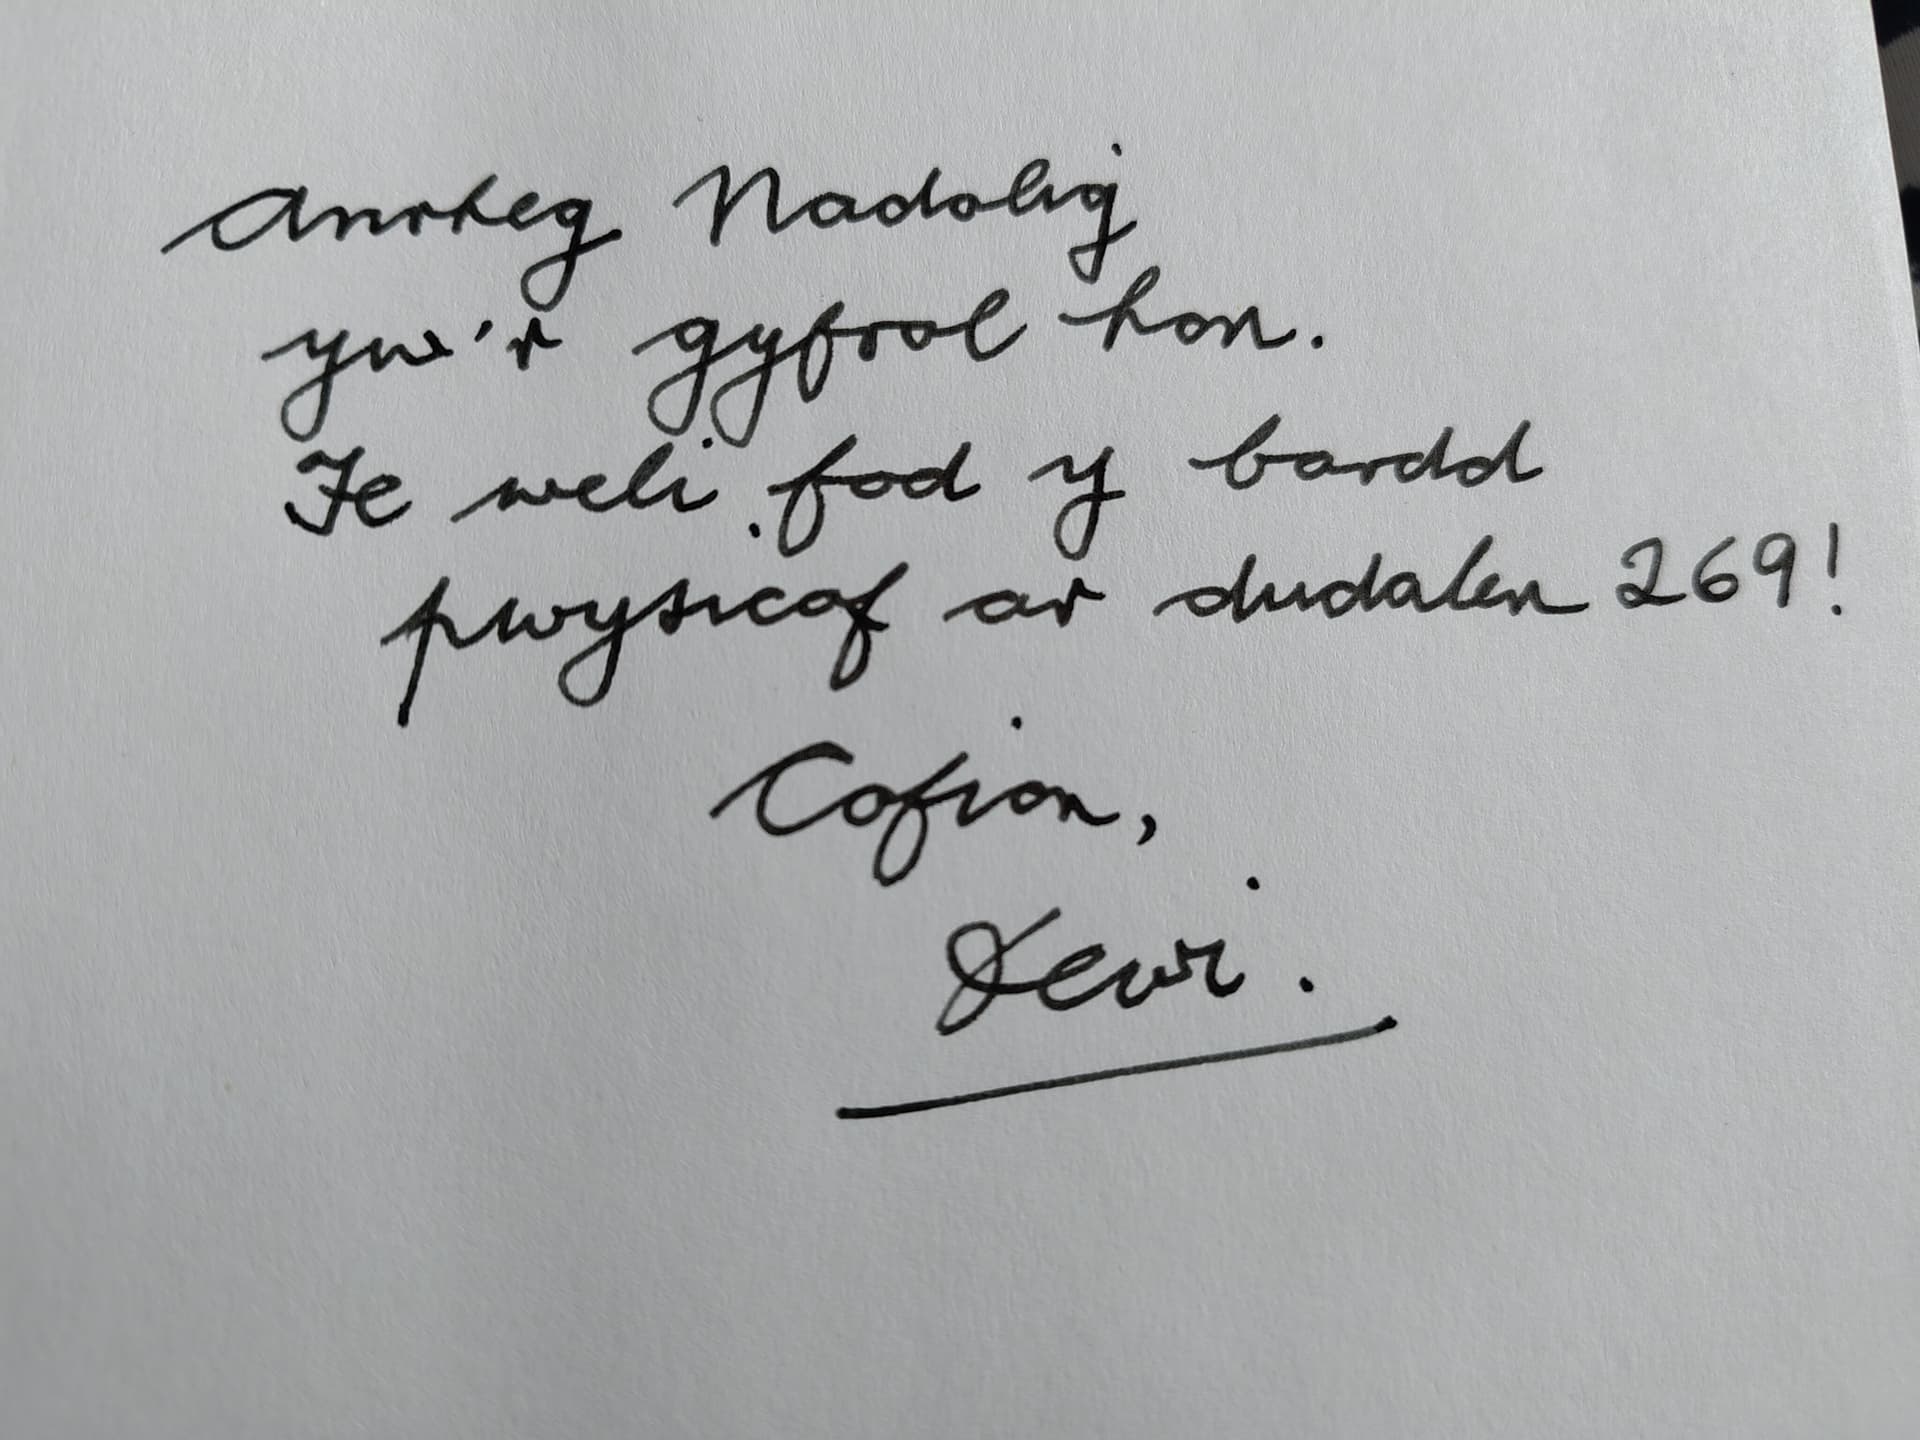 Anrheg Nadolig
yw'r gyfrol hon.
Fe weli fod y bardd
pwysicaf ar dudalen 269!
Cofion,
Dewi.